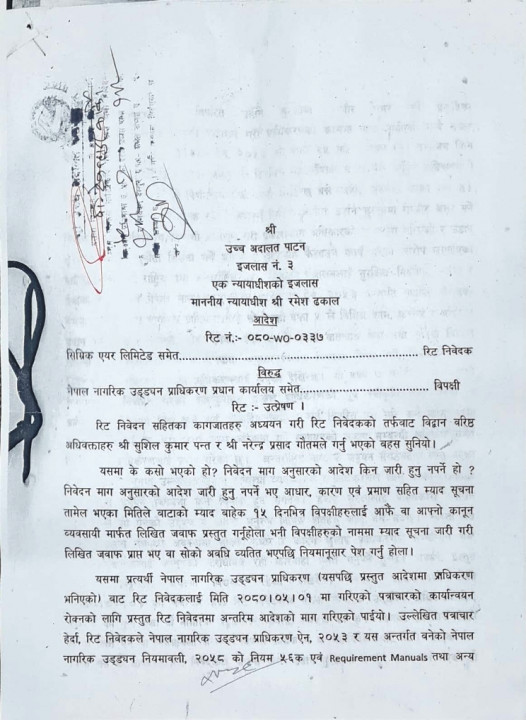 श्री
उच्च अदालत पाटन
इजलास नं. ३
एक न्यायाधीशको इजलास
माननीय न्यायाधीश श्री रमेश ढकाल
आदेश
रिट नं.:- ०८०-WO-०३३७
सिम्रिक एयर लिमिटेड समेत.......................................................................... रिट निवेदक
विरुद्ध
नेपाल नागरिक उड्डयन प्राधिकरण प्रधान कार्यालय समेत........................................ विपक्षी
रिट :- उत्प्रेषण ।
रिट निवेदन सहितका कागजातहरु अध्ययन गरी रिट निवेदकको तर्फबाट विद्वान वरिष्ठ
अधिवक्ताहरु श्री सुशिल कुमार पन्त र श्री नरेन्द्र प्रसाद गौतमले गर्नु भएको बहस सुनियो ।
यसमा के कसो भएको हो? निवेदन माग अनुसारको आदेश किन जारी हुनु नपर्ने हो ?
निवेदन माग अनुसारको आदेश जारी हुनु नपर्ने भए आधार, कारण एवं प्रमाण सहित म्याद सूचना
तामेल भएका मितिले बाटाको म्याद बाहेक १५ दिनभित्र विपक्षीहरुलाई आफै वा आफ्नो कानून
व्यवसायी मार्फत लिखित जवाफ प्रस्तुत गर्नुहोला भनी विपक्षीहरुको नाममा म्याद सूचना जारी गरी
लिखित जवाफ प्राप्त भए वा सोको अवधि व्यतित भएपछि नियमानुसार पेश गर्नु होला।
यसमा प्रत्यर्थी नेपाल नागरिक उड्डयन प्राधिकरण (यसपछि प्रस्तुत आदेशमा प्राधिकरण
भनिएको) बाट रिट निवेदकलाई मिति २०८०।०५।०१ मा गरिएको पत्राचारको कार्यान्वयन
रोक्नको लागि प्रस्तुत रिट निवेदनमा अन्तरिम आदेशको माग गरिएको पाईयो। उल्लेखित पत्राचार
हेर्दा, रिट निवेदकले नेपाल नागरिक उड्डयन प्राधिकरण ऐन, २०५३ र यस अन्तर्गत बनेको नेपाल
नागरिक उड्डयन नियमावली, २०५८ को नियम ५६क एवं Requirement Manuals तथा अन्य